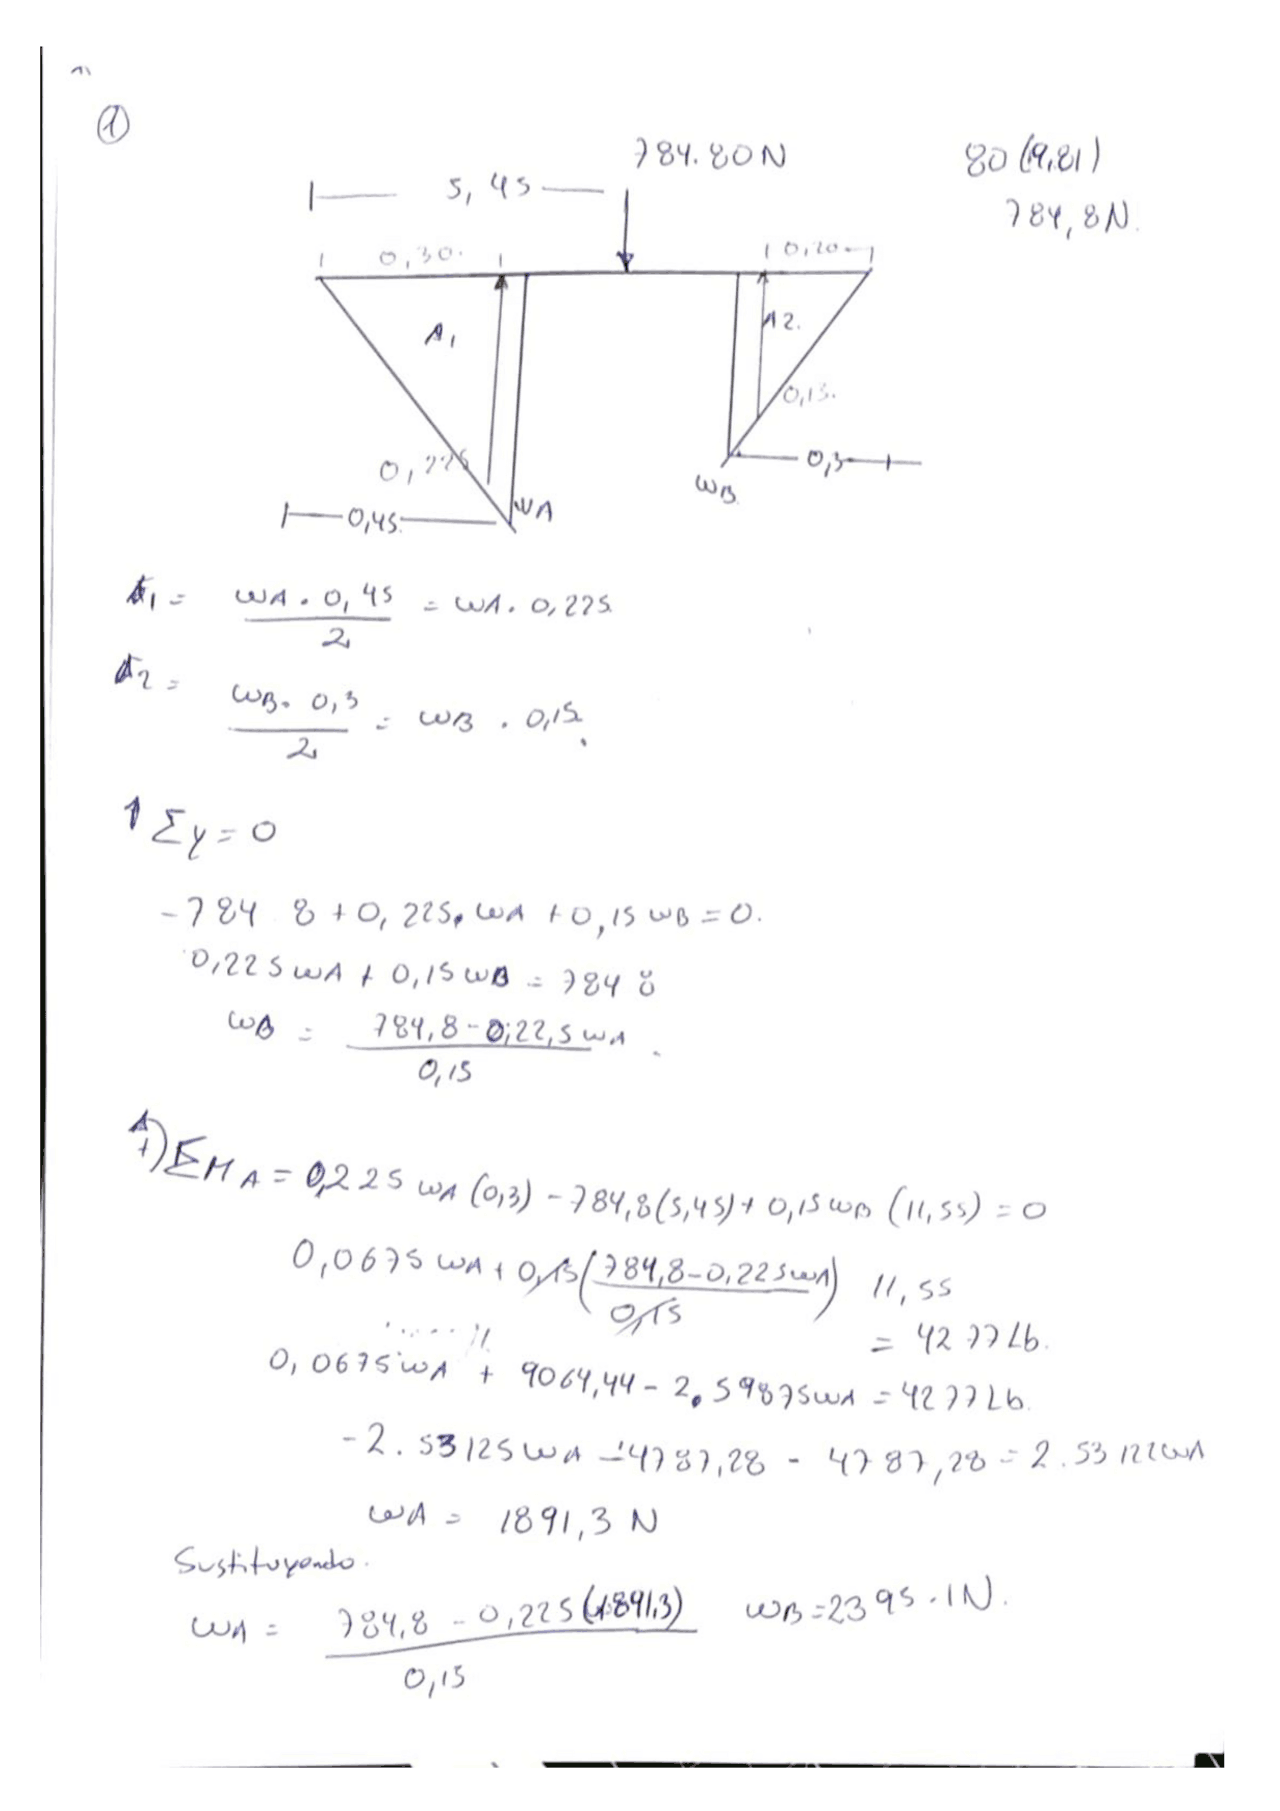 ①
784.80N 80(9,81)
5,45 784,8N.
0,30. 0,20
A1 A2.
0,13.
0,225 0,3
WB
0,45. WA
A1 = WA . 0,45 / 2 = WA . 0,225
A2 = WB . 0,3 / 2 = WB . 0,15.
↑ Σy = 0
-784 8 + 0,225. WA + 0,15 WB = 0.
0,225 WA + 0,15 WB = 784 8
WB = 784,8 - 0,22,5 WA / 0,15
+) ΣMA = 0,225 WA (0,3) - 784,8(5,45) + 0,15 WB (11,55) = 0
0,0675 WA + 0,15 (784,8 - 0,225 WA / 0,15) 11,55
= 4277 Lb.
0,0675 WA + 9064,44 - 2.59875 WA = 4277 Lb.
-2.53125 WA = -4787,28 - 4787,28 = 2.53122 WA
WA = 1891,3 N
Sustituyendo.
WA = 784,8 - 0,225 (1891,3) / 0,15 WB = 2395.1N.